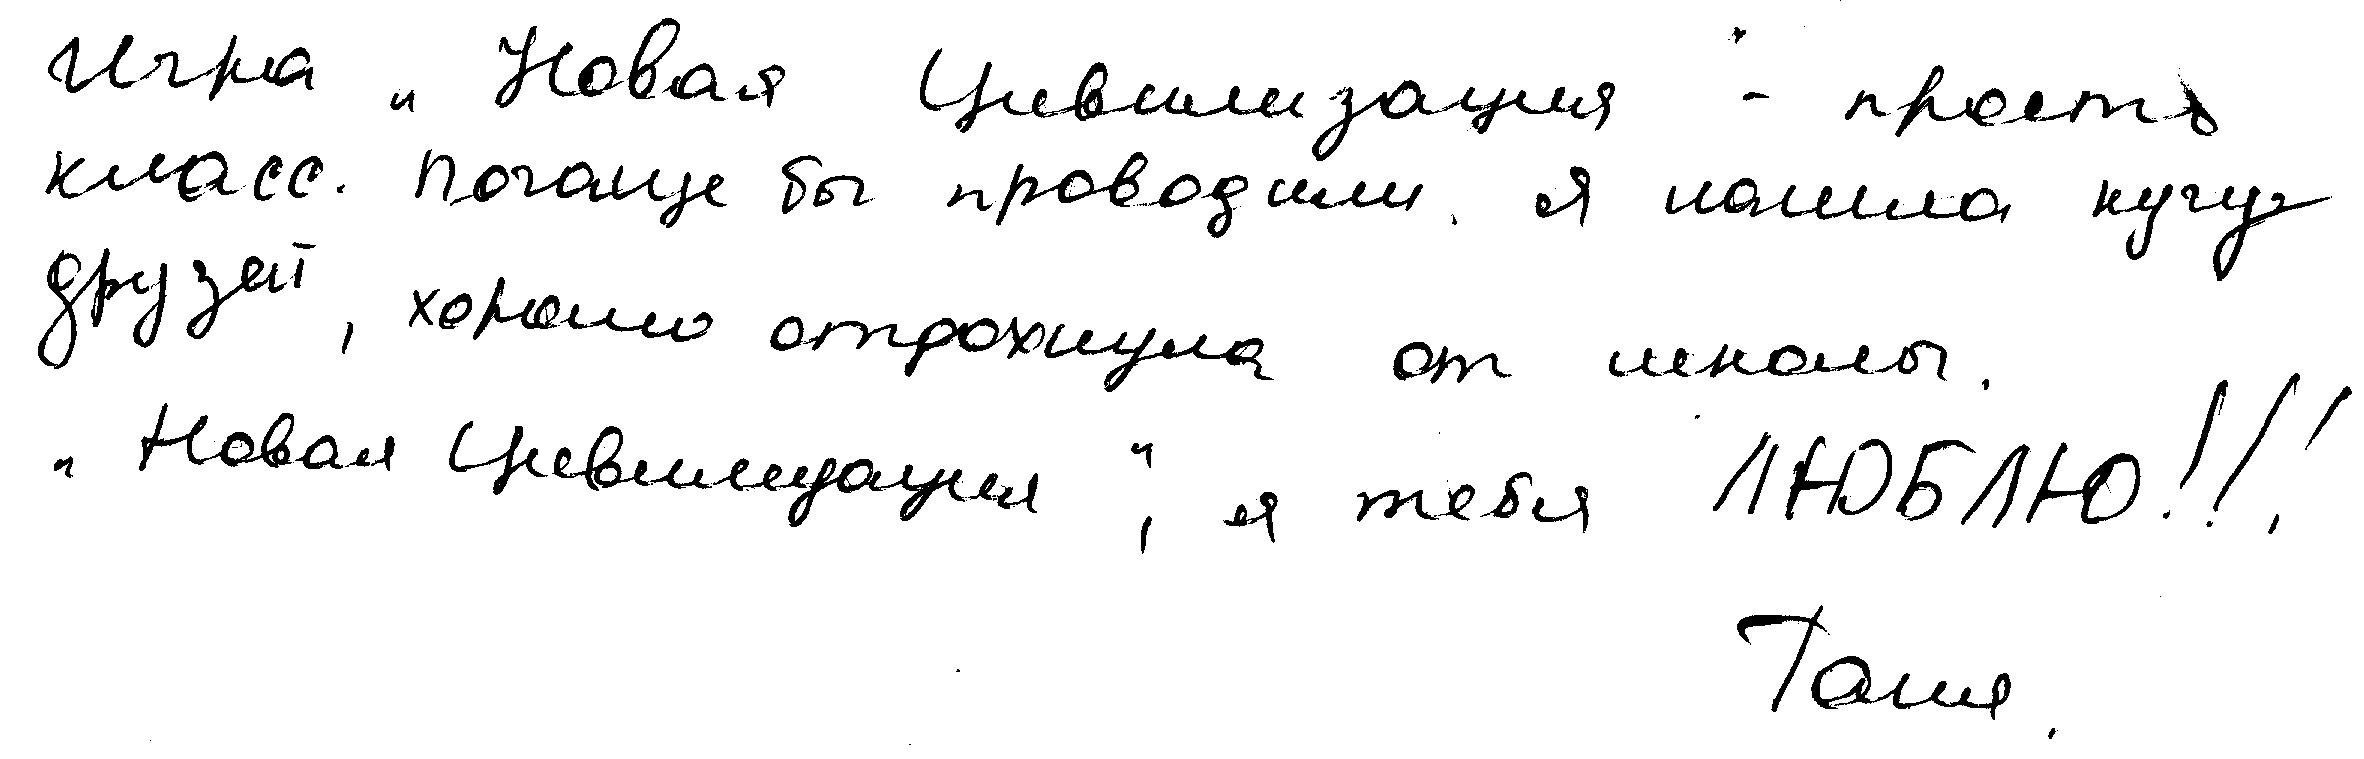 Игра „Новая Цивилизация" - просто
класс. Почаще бы проводили. Я нашла кучу
друзей, хорошо отдохнула от школы.
„Новая Цивилизация", я тебя ЛЮБЛЮ!!!
Таня.